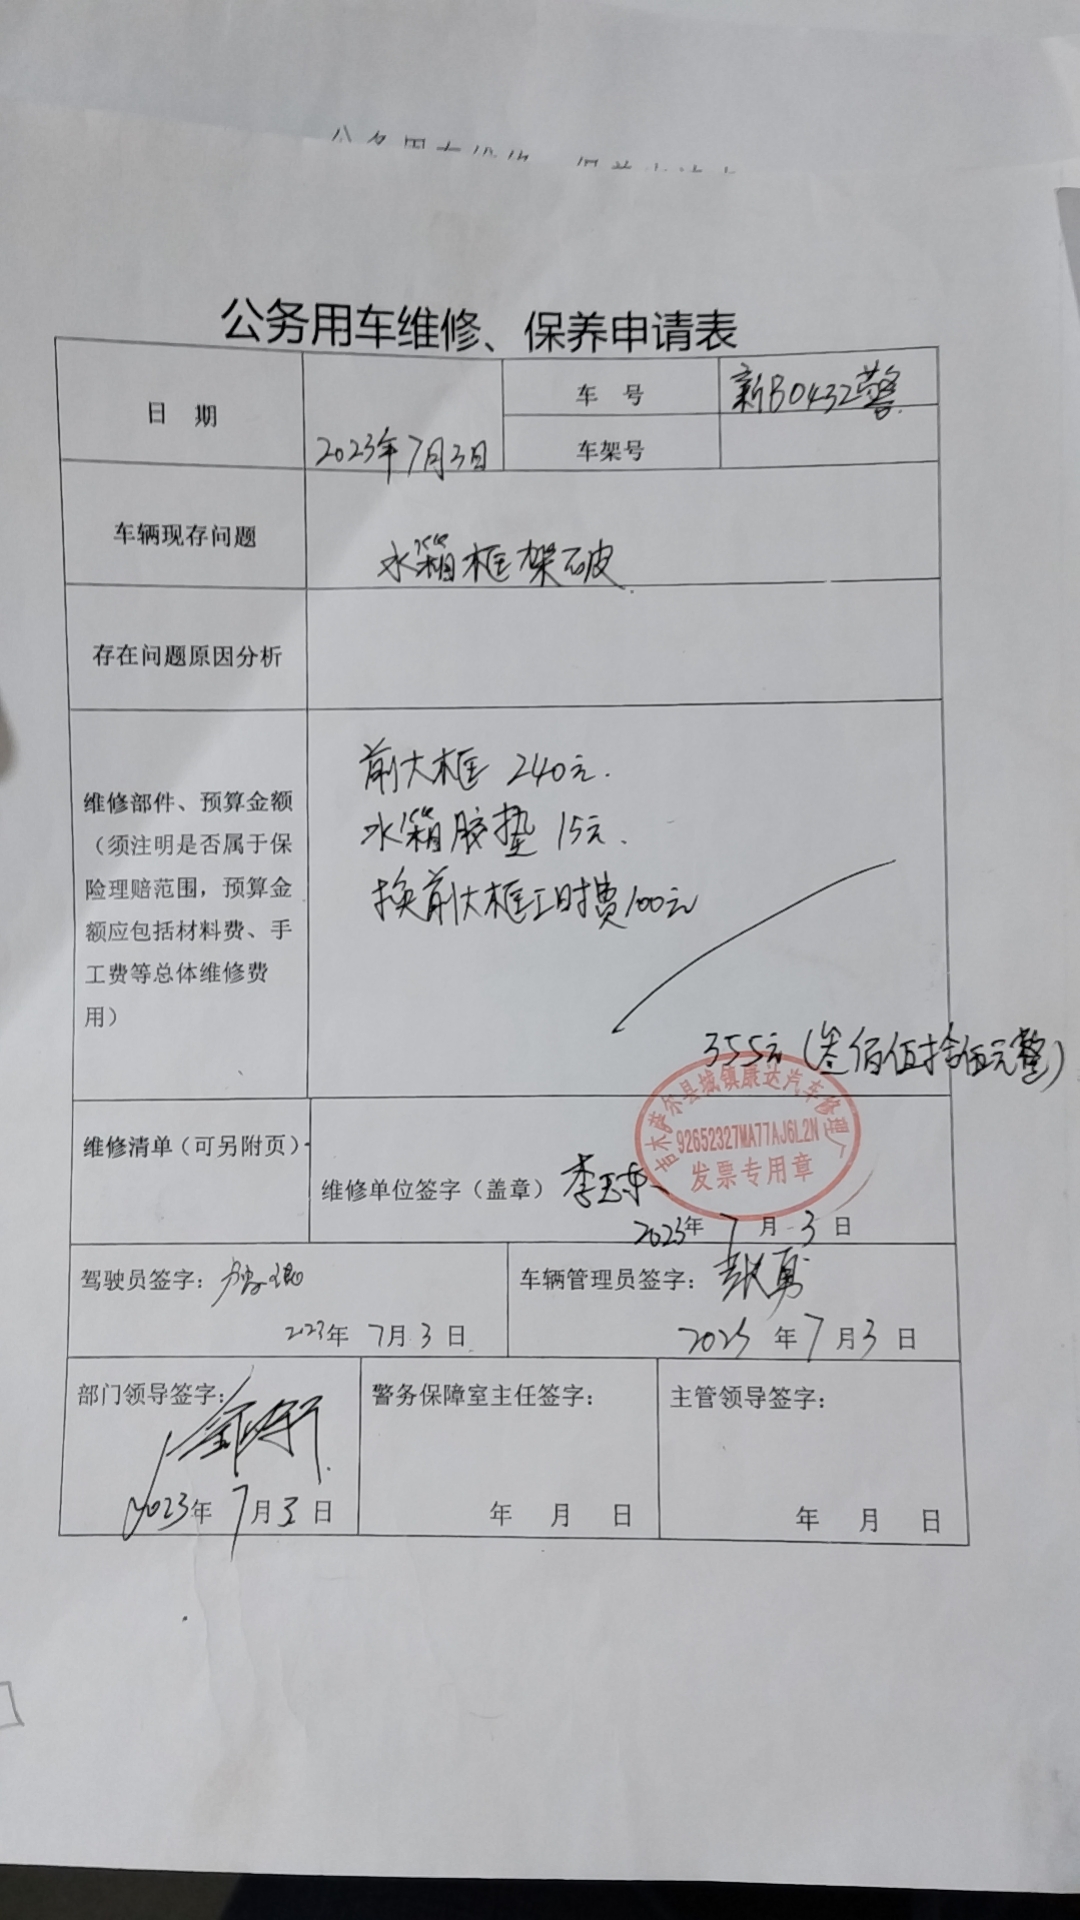 公务用车维修、保养申请表
日 期
2023年7月3日
车 号
新B0432警
车架号
车辆现存问题
水箱框架破
存在问题原因分析
维修部件、预算金额
（须注明是否属于保
险理赔范围，预算金
额应包括材料费、手
工费等总体维修费
用）
前大框 240元.
水箱胶垫 15元.
换前大框工时费100元
355元(叁佰伍拾伍元整)
维修清单（可另附页）
维修单位签字（盖章）李玉东
吉木萨尔县城镇康达汽车修理厂
92652327MA77AJ6L2N
发票专用章
2023年 7 月 3 日
驾驶员签字：
2023年 7月3日
车辆管理员签字：
2023 年7月3日
部门领导签字：
2023年 7月3日
警务保障室主任签字：
年 月 日
主管领导签字：
年 月 日